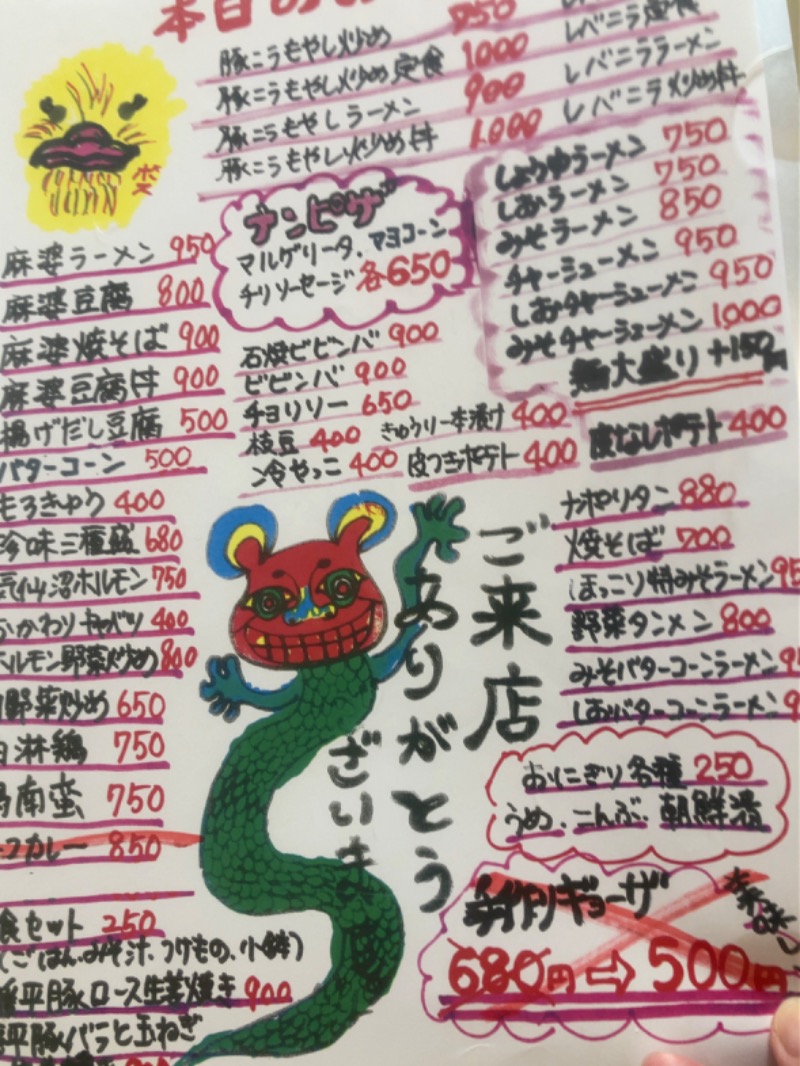 本日のお
豚ニラもやし炒め 750
豚ニラもやし炒め定食 1000
豚ニラもやしラーメン 900
豚ニラもやし炒め丼 1.000
レバニラ定食
レバニララーメン
レバニラ炒め丼
ボス
ナンピザ
マルゲリータ、マヨコーン
チリソーセージ 各650
しょうゆラーメン 750
しおラーメン 750
みそラーメン 850
チャーシューメン 950
しおチャーシューメン 950
みそチャーシューメン 1,000
大盛り +150円
麻婆ラーメン 950
麻婆豆腐 800
麻婆焼そば 900
麻婆豆腐丼 900
揚げだし豆腐 500
バターコーン 500
もろきゅう 400
珍味三種盛 680
気仙沼ホルモン 750
おかわりキャベツ 400
ホルモン野菜炒め 800
野菜炒め 650
淋鶏 750
南蛮 750
カレー 850
食セット 250
(ごはん、みそ汁、つけもの、小鉢)
平豚ロース生姜焼き 900
平豚バラと玉ねぎ
石焼ビビンバ 900
ビビンバ 900
チョリソー 650
枝豆 400
きゅうり一本漬け 400
冷やっこ 400
皮つきポテト 400
皮なしポテト 400
ナポリタン 880
焼そば 700
ほっこり特みそラーメン 95
野菜タンメン 800
みそバターコーンラーメン 9
しおバターコーンラーメン 9
ご来店
ありがとう
ざいま
おにぎり各種 250
うめ、こんぶ、朝鮮漬
ギョーザ
680円⇨500円